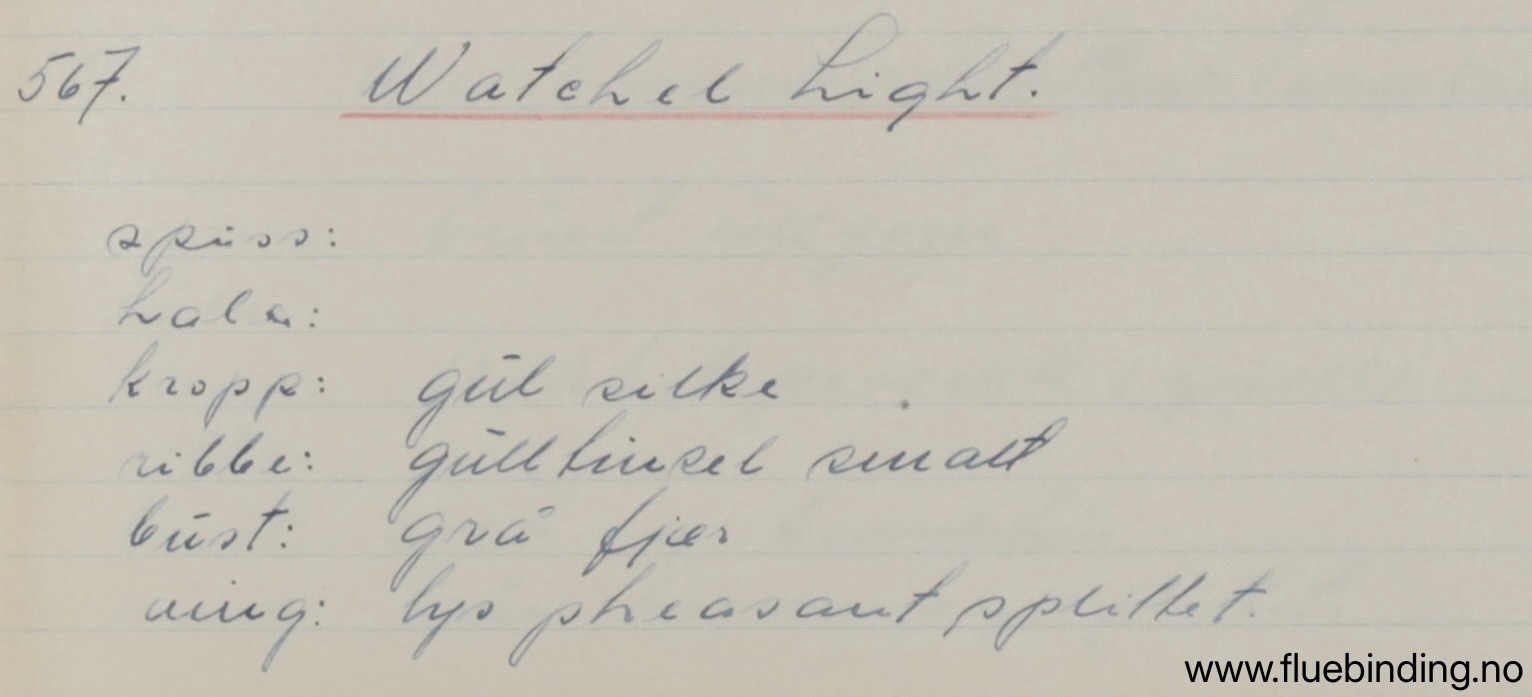 567. Watchel Light.
spuss:
hale:
kropp: gul silke
ribbe: gull tinsel smalt
bust: grå fjær
ving: lys pheasant splittet.
www.fluebinding.no